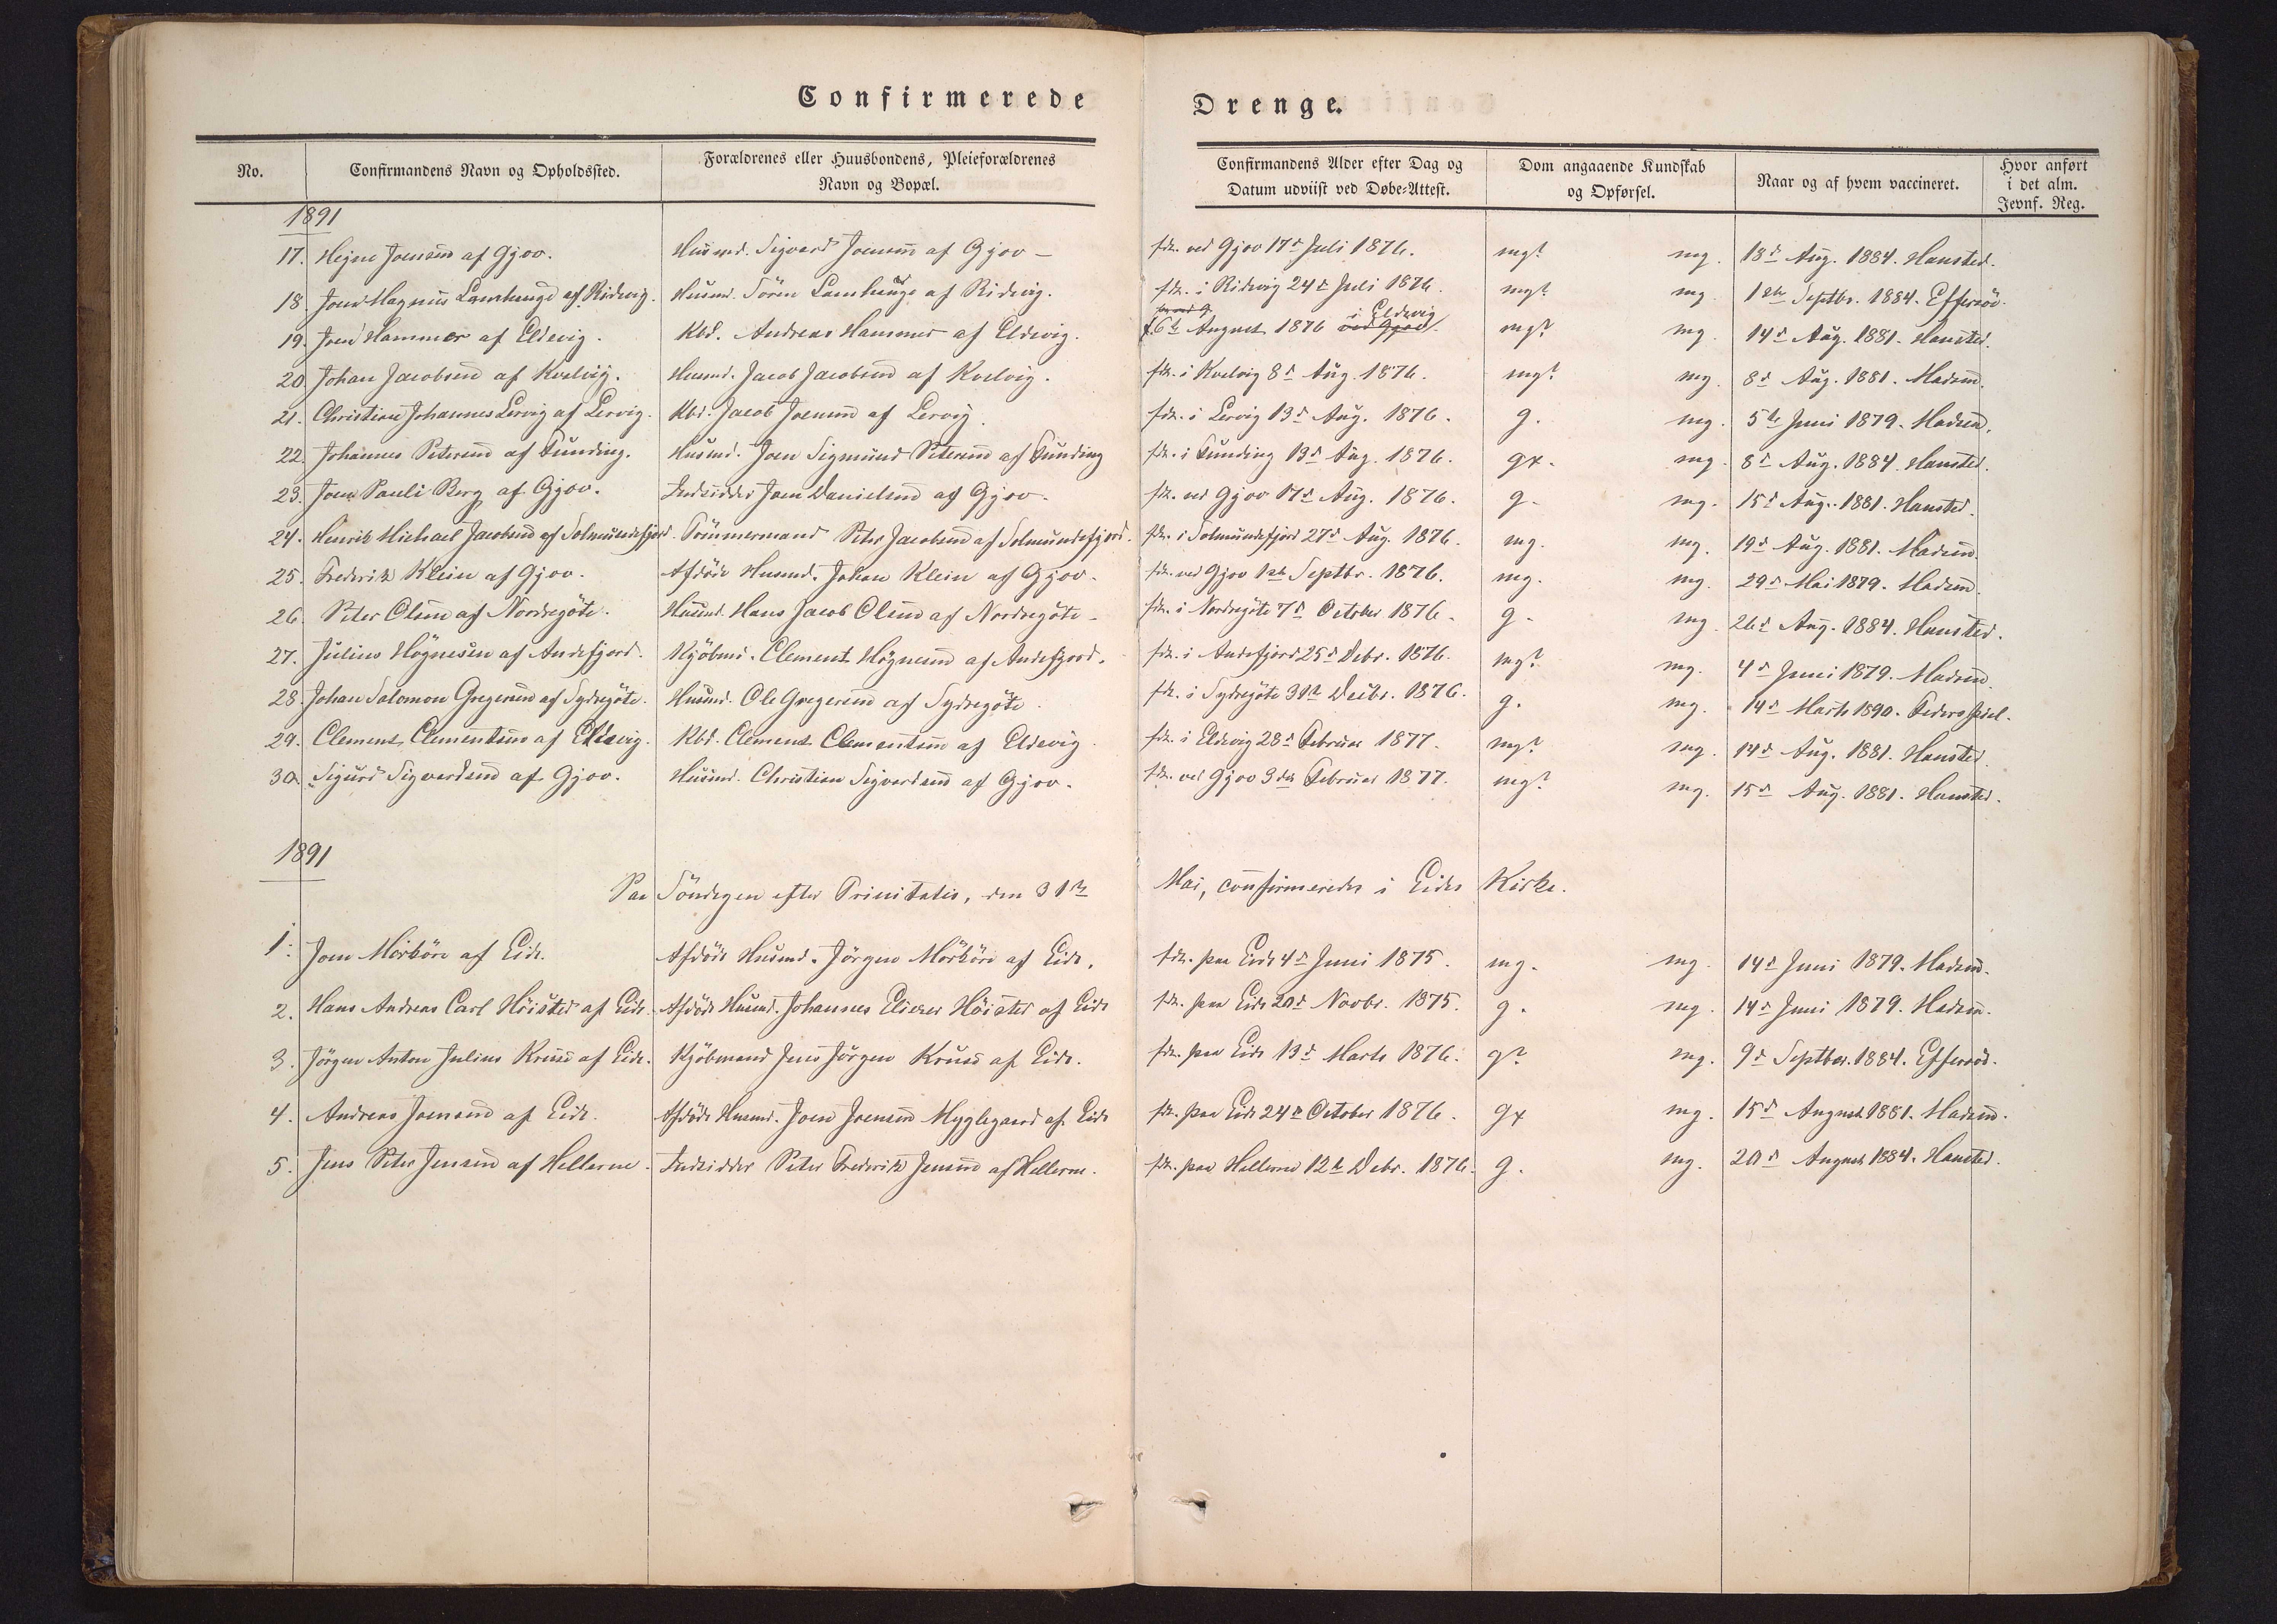 Confirmerede Drenge.
No. Confirmandens Navn og Opholdssted. Forældrenes eller Huusbondens, Pleieforældrenes Navn og Bopæl. Confirmandens Alder efter Dag og Datum udviist ved Døbe-Attest. Dom angaaende Kundskab og Opførsel. Naar og af hvem vaccineret. Hvor anført i det alm. Jevnf. Reg.
1891
17. Hejne Joensen af Gjov. Husmd. Sigvard Joensen af Gjov - fdt. ved Gjov 17d Juli 1876. mg? mg. 18d Aug. 1884. Hansted.
18. Joen Magnus Lamhauge af Ridevig. Husmd. Sören Lamhauge af Ridevig. fdt. i Ridevig 24d Juli 1876. mg? mg. 1ste Septbr. 1884. Effersöe.
19. Joen Hammer af Eldevig. Kbd. Andreas Hammer af Eldevig. f. 6te August 1876 ved Gjov i Eldevig mg? mg. 14d Aug. 1881. Hansted.
20. Johan Jacobsen af Kvalvig. Husmd. Jacob Jacobsen af Kvalvig. fdt. i Kvalvig 8d Aug. 1876. mg? mg. 8d Aug. 1881. Madsen.
21. Christian Johannes Lervig af Lervig. Kbd. Jacob Joensen af Lervig. fdt. i Lervig 13d Aug. 1876. g. mg. 5te Juni 1879. Madsen.
22. Johannes Petersen af Funding. Husmd. Joen Sigmund Petersen af Funding fdt. i Funding 13d Aug. 1876. gx. mg. 8d Aug. 1884. Hansted.
23. Joen Pauli Berg af Gjov. Indsidder Joen Danielsen af Gjov. fdt. ved Gjov 17d Aug. 1876. g. mg. 15d Aug. 1881. Hansted.
24. Henrik Michael Jacobsen af Solmundefjord. Tömmermand Peter Jacobsen af Solmundefjord. fdt. i Solmundefjord 27d Aug. 1876. mg. mg. 19d Aug. 1881. Madsen.
25. Frederik Klein af Gjov. Afdöde Husmd. Johan Klein af Gjov. fdt. ved Gjov 1ste Septbr. 1876. mg. mg. 29d Mai 1879. Madsen.
26. Peter Olsen af Nordregöte. Husmd. Hans Jacob Olsen af Nordregöte - fdt. i Nordregöte 7d October 1876. g. mg. 26d Aug. 1884. Hansted.
27. Julius Högnesen af Andefjord. Kjöbmd. Clement Högnesen af Andefjord. fdt. i Andefjord 25d Debr. 1876. mg? mg. 4d Juni 1879. Madsen.
28. Johan Salomon Gregersen af Sydregöte. Husmd. Ole Gregersen af Sydregöte. fdt. i Sydregöte 31te Decbr. 1876. g. mg. 14d Marts 1890. Federspiel.
29. Clement Clementsen af Eldevig. Kbd. Clement Clementsen af Eldevig. fdt. i Eldevig 28d Februar 1877. mg? mg. 14d Aug. 1881. Hansted.
30. Sigurd Sigvardsen af Gjov. Husmd. Christian Sigvardsen af Gjov. fdt. ved Gjov 3die Februar 1877. mg? mg. 15d Aug. 1881. Hansted.
1891
Paa Söndagen efter Trinitatis, den 31te Mai, confirmeredes i Eides Kirke.
1. Joen Mörköre af Eide. Afdöde Husmd. Jörgen Mörköre af Eide. fdt. paa Eide 4d Juni 1875. mg. mg. 14d Juni 1879. Madsen.
2. Hans Andreas Carl Höisted af Eide. Afdöde Husmd. Johannes Elieser Höisted af Eide fdt. paa Eide 20d Novbr. 1875. g. mg. 14d Juni 1879. Madsen.
3. Jörgen Anton Julius Kruse af Eide. Kjöbmand Jens Jörgen Kruse af Eide. fdt. paa Eide 13d Marts 1876. g? mg. 9d Septber. 1884. Effersöe.
4. Andreas Joensen af Eide. Afdöde Husmd. Joen Joensen Myglegaard af Eide fdt. paa Eide 24d October 1876. gx mg. 15d August 1881. Madsen.
5. Jens Peter Jensen af Hellerne. Indsidder Peter Frederik Jensen af Hellerne. fdt. paa Hellerne 12te Debr. 1876. g. mg. 20d August 1884. Hansted.